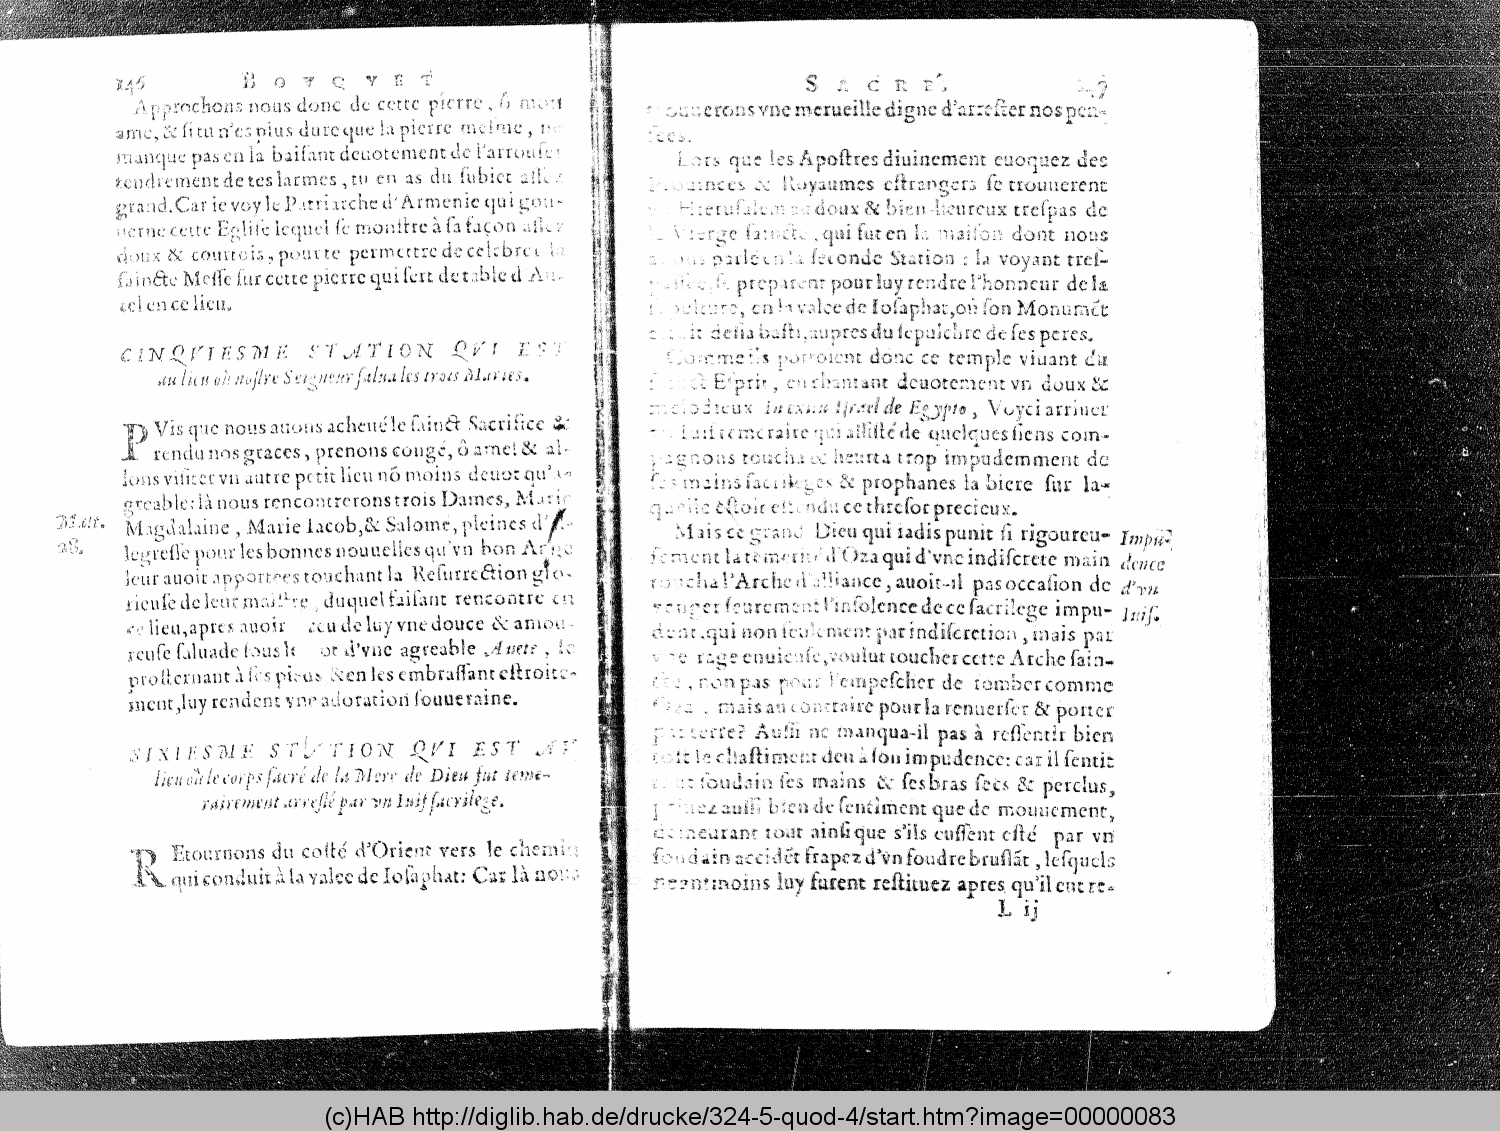 246 BOVQVET
Approchons nous donc de cette pierre, ô mon
ame, & si tu n'es plus dure que la pierre mesme, ne
manque pas en la baisant deuotement de l'arrouser
tendrement de tes larmes, tu en as du subiet assez
grand. Car ie voy le Patriarche d'Armenie qui gou-
uerne cette Eglise lequel se monstre à sa façon assez
doux & courtois, pour te permettre de celebrer la
saincte Messe sur cette pierre qui sert de table d'Au-
tel en ce lieu.
CINQVIESME STATION QVI EST
au lieu où nostre Seigneur salua les trois Maries.
PVis que nous auons acheué le sainct Sacrifice &
rendu nos graces, prenons congé, ô ame! & al-
lons visiter vn autre petit lieu nõ moins deuot qu'a-
greable: là nous rencontrerons trois Dames, Marie
Matt. 28.
Magdalaine, Marie Iacob, & Salome, pleines d'al-
legresse pour les bonnes nouuelles qu'vn bon Ange
leur auoit apportees touchant la Resurrection glo-
rieuse de leur maistre, duquel faisant rencontre en
ce lieu, apres auoir receu de luy vne douce & amou-
reuse saluade sous le mot d'vne agreable Auete, se
prosternant à ses pieds & en les embrassant estroite-
ment, luy rendent vne adoration souueraine.
SIXIESME STATION QVI EST AV
lieu où le corps sacré de la Mere de Dieu fut teme-
rairement arresté par vn Iuif sacrilege.
REtournons du costé d'Orient vers le chemin
qui conduit à la valee de Iosaphat: Car là nous
SACRÉ. 247
trouuerons vne merueille digne d'arrester nos pen-
sees.
Lors que les Apostres diuinement euoquez des
Prouinces & Royaumes estrangers se trouuerent
en Hierusalem au doux & bien-heureux trespas de
la Vierge saincte, qui fut en la maison dont nous
auons parlé en la seconde Station: la voyant tres-
passee, se preparent pour luy rendre l'honneur de la
sepulture, en la valee de Iosaphat, où son Monumẽt
estoit desia basti, aupres du sepulchre de ses peres.
Comme ils portoient donc ce temple viuant du
sainct Esprit, en chantant deuotement vn doux &
melodieux In exitu Israel de Egypto, Voyci arriuer
vn Iuif temeraire qui assisté de quelques siens com-
pagnons toucha & heurta trop impudemment de
ses mains sacrileges & prophanes la biere sur la-
quelle estoit estendu ce thresor precieux.
Mais ce grand Dieu qui iadis punit si rigoureu-
Impudence d'vn Iuif.
sement la temerité d'Oza qui d'vne indiscrete main
toucha l'Arche d'alliance, auoit-il pas occasion de
venger seurement l'insolence de ce sacrilege impu-
dent, qui non seulement par indiscretion, mais par
vne rage enuieuse, voulut toucher cette Arche sain-
cte, non pas pour l'empescher de tomber comme
Oza, mais au contraire pour la renuerser & porter
par terre? Aussi ne manqua-il pas à ressentir bien
tost le chastiment deu à son impudence: car il sentit
tout soudain ses mains & ses bras secs & perclus,
priuez aussi bien de sentiment que de mouuement,
demeurant tout ainsi que s'ils eussent esté par vn
soudain accidẽt frapez d'vn foudre bruslãt, lesquels
neantmoins luy furent restituez apres qu'il eut re-
L ij
(c)HAB http://diglib.hab.de/drucke/324-5-quod-4/start.htm?image=00000083